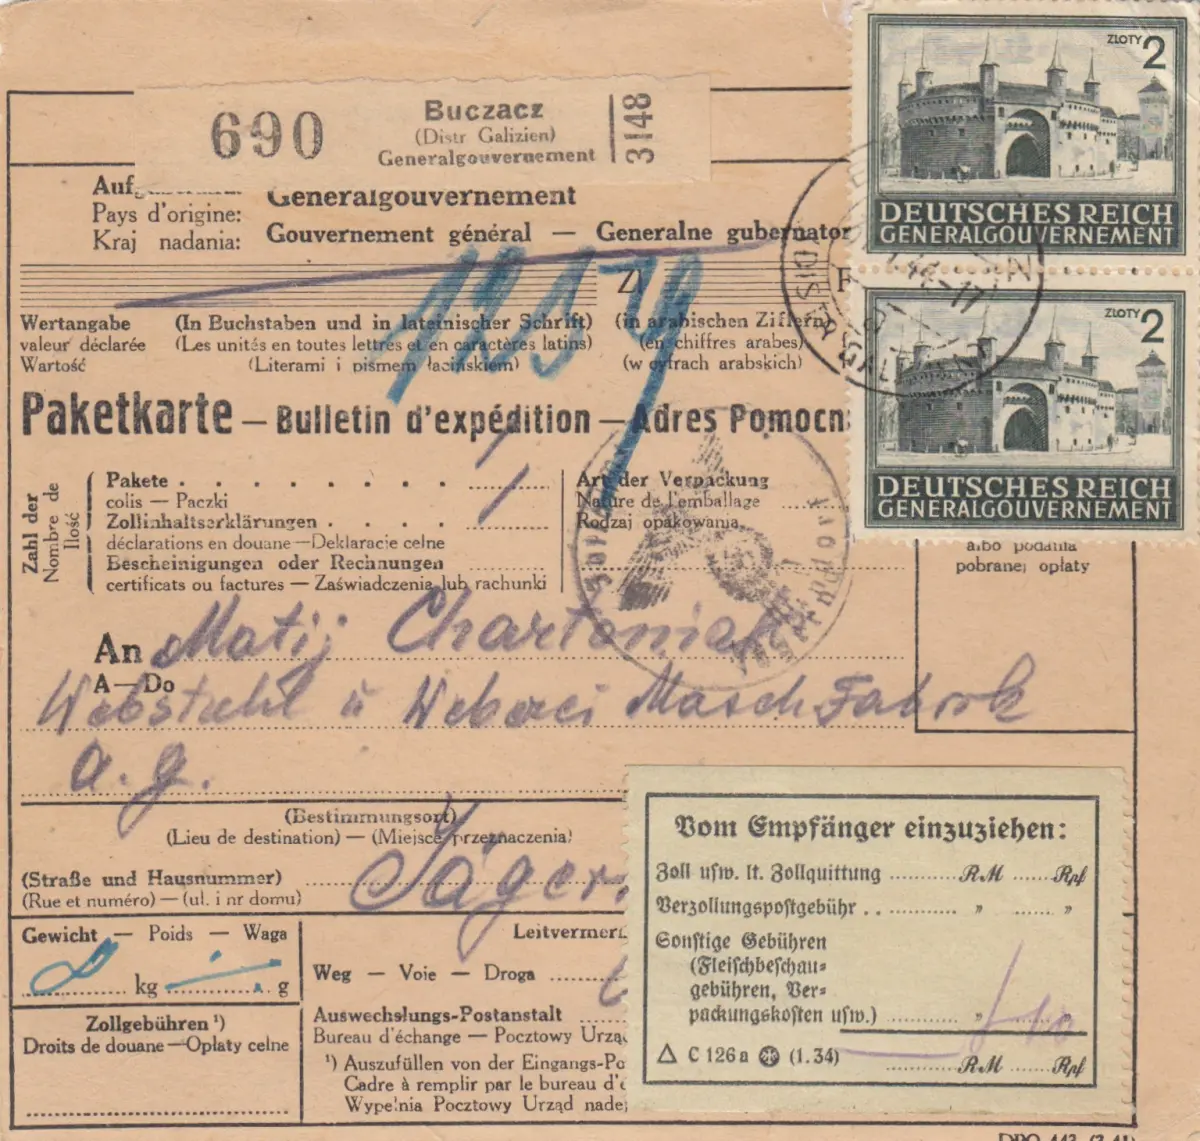 ZLOTY 2
DEUTSCHES REICH
GENERALGOUVERNEMENT
ZLOTY 2
DEUTSCHES REICH
GENERALGOUVERNEMENT
690
Buczacz
(Distr Galizien)
Generalgouvernement
3148
Auf
Generalgouvernement
Pays d'origine:
Kraj nadania:
Gouvernement général — Generalne gubernator
1259
Zl
F
44-17
Wertangabe (In Buchstaben und in lateinischer Schrift) (in arabischen Ziffern)
valeur déclarée (Les unités en toutes lettres et en caractères latins) (en chiffres arabes)
Wartość (Literami i pismem łacińskiem) (w cyfrach arabskich)
Paketkarte — Bulletin d'expédition — Adres Pomocn
Zahl der
Nombre de
Ilość
Pakete
colis — Paczki
Zollinhaltserklärungen
déclarations en douane — Deklaracje celne
Bescheinigungen oder Rechnungen
certificats ou factures — Zaświadczenia lub rachunki
1
1
Art der Verpackung
Nature de l'emballage
Rodzaj opakowania
albo podania
pobranej opłaty
An Matij Chartoniak
A — Do
Webstuhl u Weberei Masch Fabrik
a. g.
(Bestimmungsort)
(Lieu de destination) — (Miejsce przeznaczenia)
Jägern
(Straße und Hausnummer)
(Rue et numéro) — (ul. i nr domu)
Gewicht — Poids — Waga
8 kg — g
Zollgebühren ¹)
Droits de douane — Opłaty celne
Leitvermerk
Weg — Voie — Droga
Auswechslungs-Postanstalt
Bureau d'échange — Pocztowy Urzą
¹) Auszufüllen von der Eingangs-Po
Cadre à remplir par le bureau d'é
Wypełnia Pocztowy Urząd nade
Vom Empfänger einzuziehen:
Zoll usw. lt. Zollquittung RM Rpf
Verzollungspostgebühr " "
Sonstige Gebühren
(Fleischbeschau=
gebühren, Ver=
packungskosten usw.) "
C 126a (1.34) RM Rpf